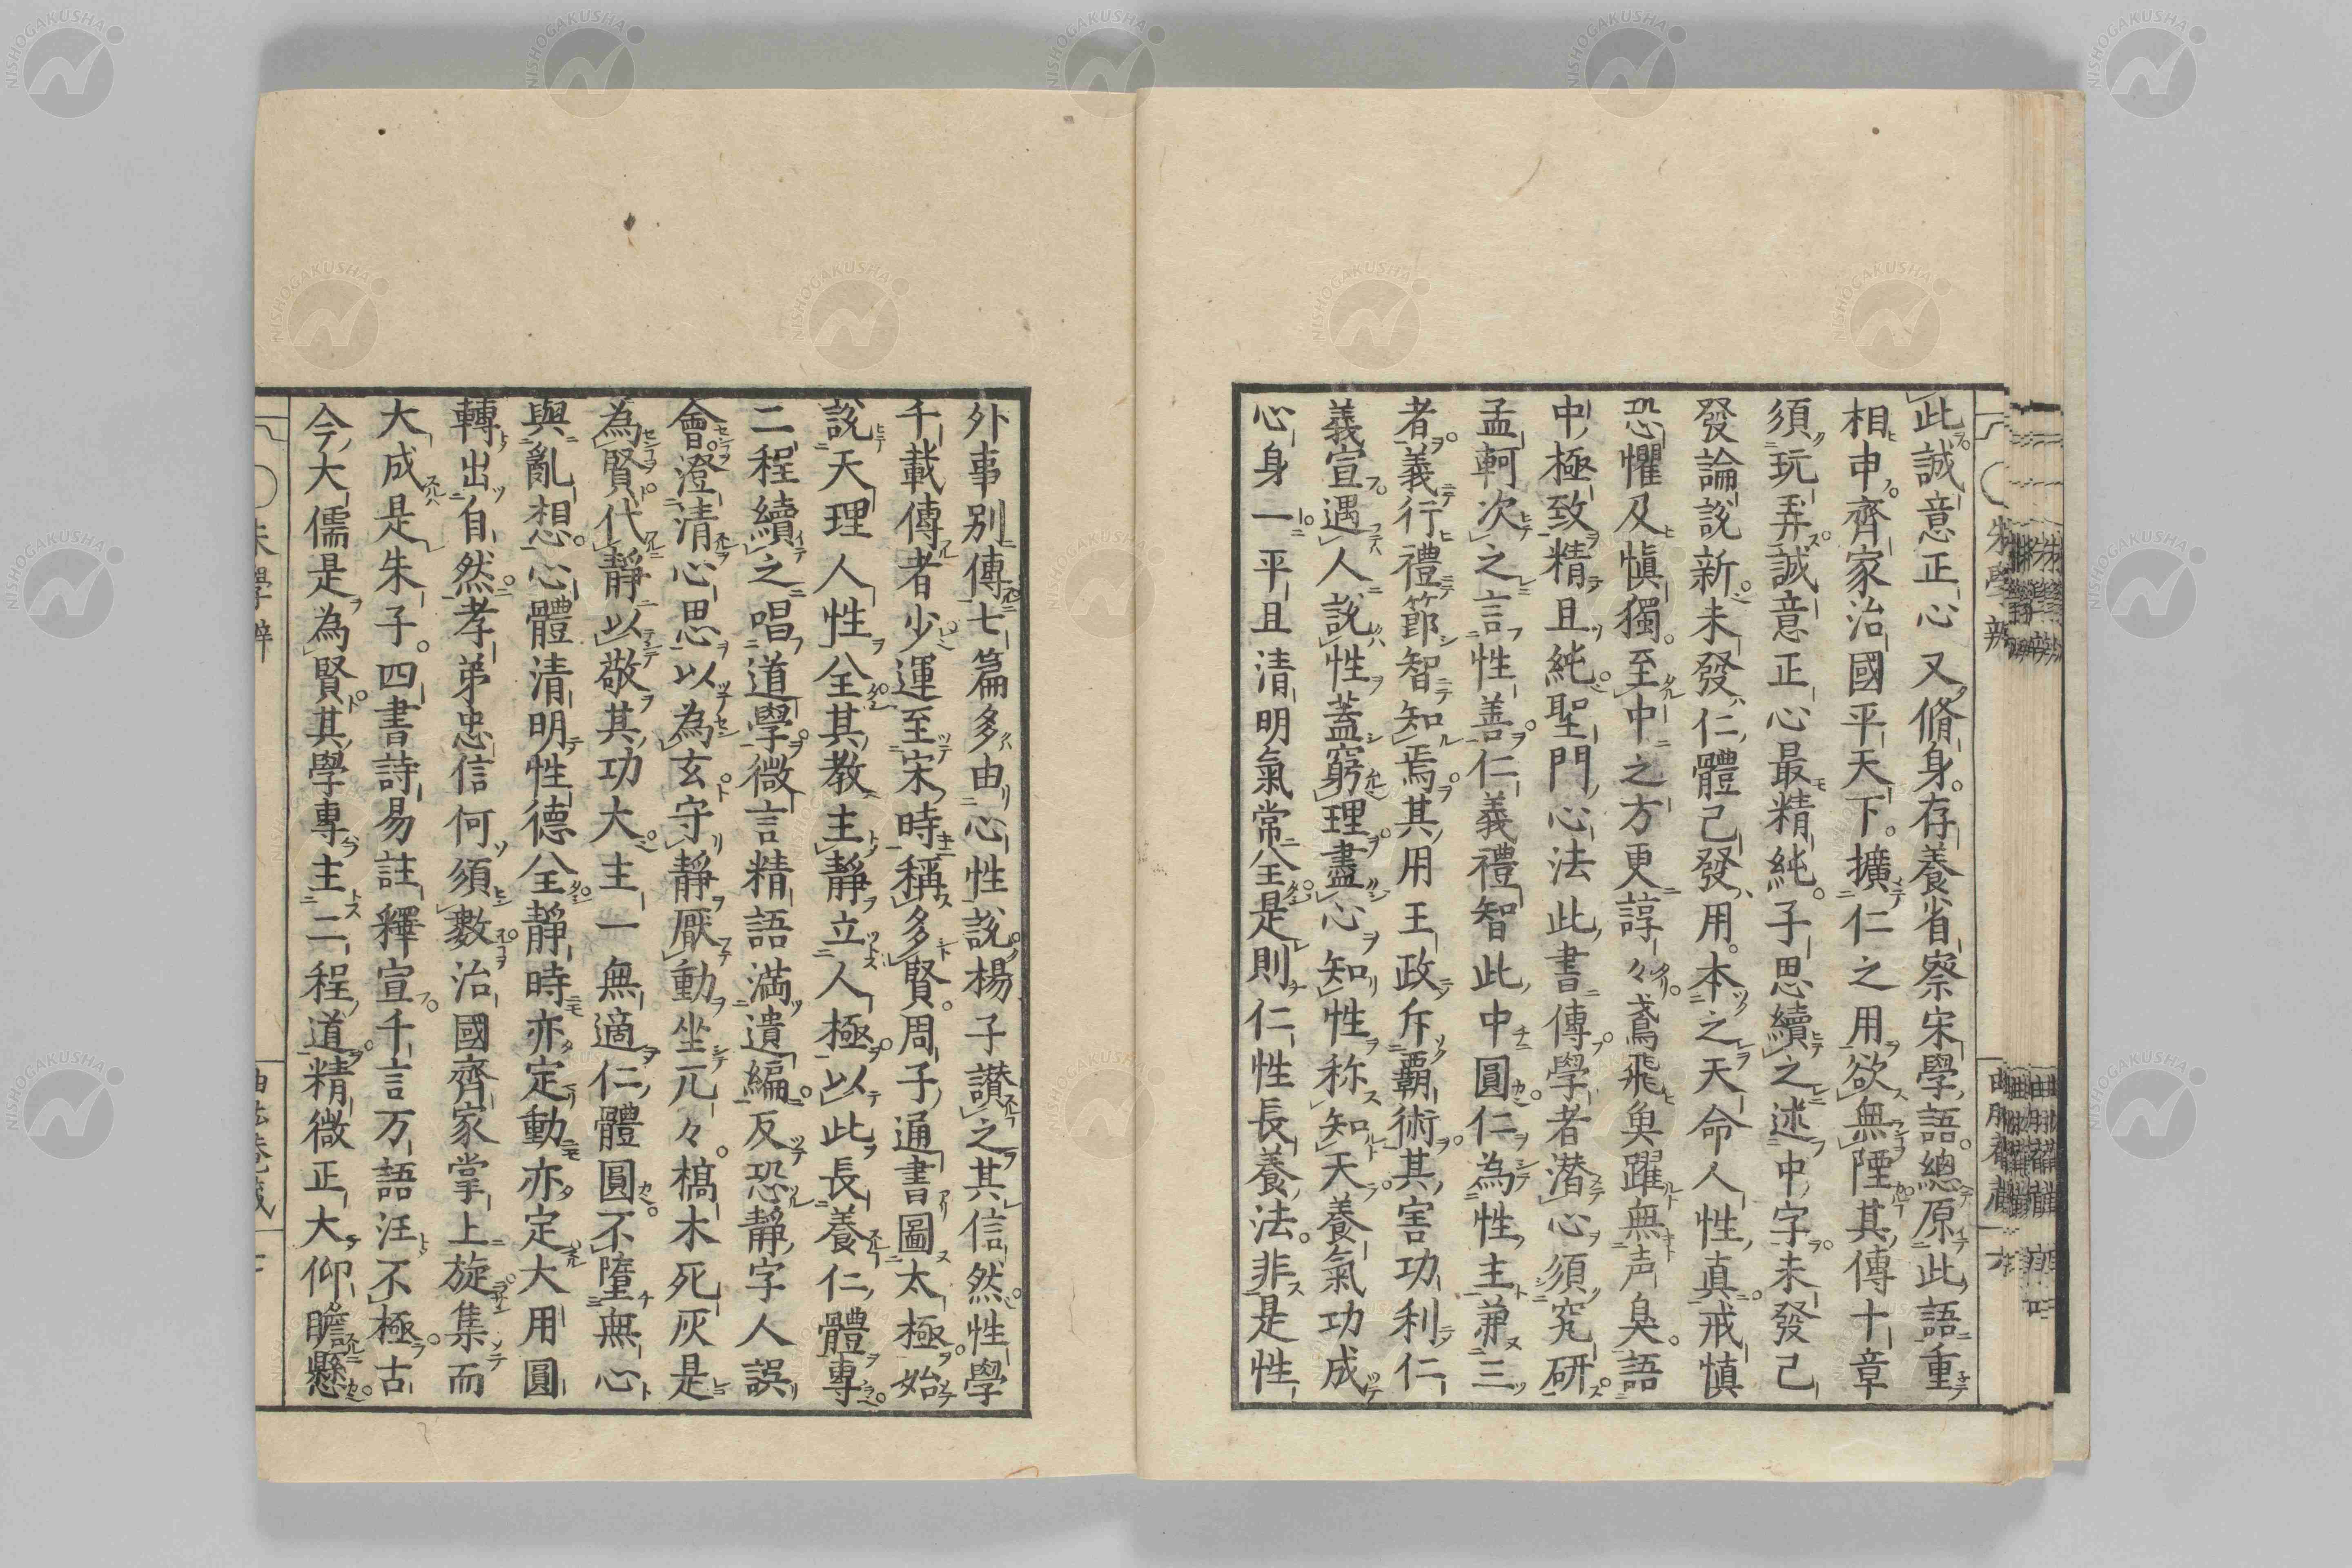 此誠意正心又脩身。存養省察宋學語。總原此語重
相申齊家治國平天下。擴仁之用欲無陻其傳十章
須玩弄誠意正心最精純。子思續之述中字未發己
發論說新。未發仁體己發用。本之天命人性真。戒慎
恐懼及慎獨。至中之方更諄々。鳶飛魚躍無声臭。語
中極致精且純。聖門心法此書傳。學者潜心須究研。
孟軻次之言性善。仁義禮智此中圓。仁為性主兼三
者。義行禮節智知焉。其用王政斥覇術。其害功利仁
義宣。遇人說性蓋窮理。盡心知性称知天。養氣功成
心身一。平且清明氣常全。是則仁性長養法。非是性
外事別傳。七篇多由心性說。楊子讃之其信然。性學
千載傳者少。運至宋時稱多賢。周子通書圖太極。始
說天理人性全。其教主靜立人極。以此長養仁體專。
二程續之唱道學。微言精語満遺編。反恐靜字人誤
會。澄清心思以為玄。守靜厭動坐兀々。槁木死灰是
為賢。代靜以敬其功大。主一無適仁體圓。不墮無心
與亂想。心體清明性德全。靜時亦定動亦定。大用圓
轉出自然。孝弟忠信何須數。治國齊家掌上旋。集而
大成是朱子。四書詩易註釋宣。千言万語汪不極。古
今大儒是為賢。其學專主二程道。精微正大仰瞻懸。